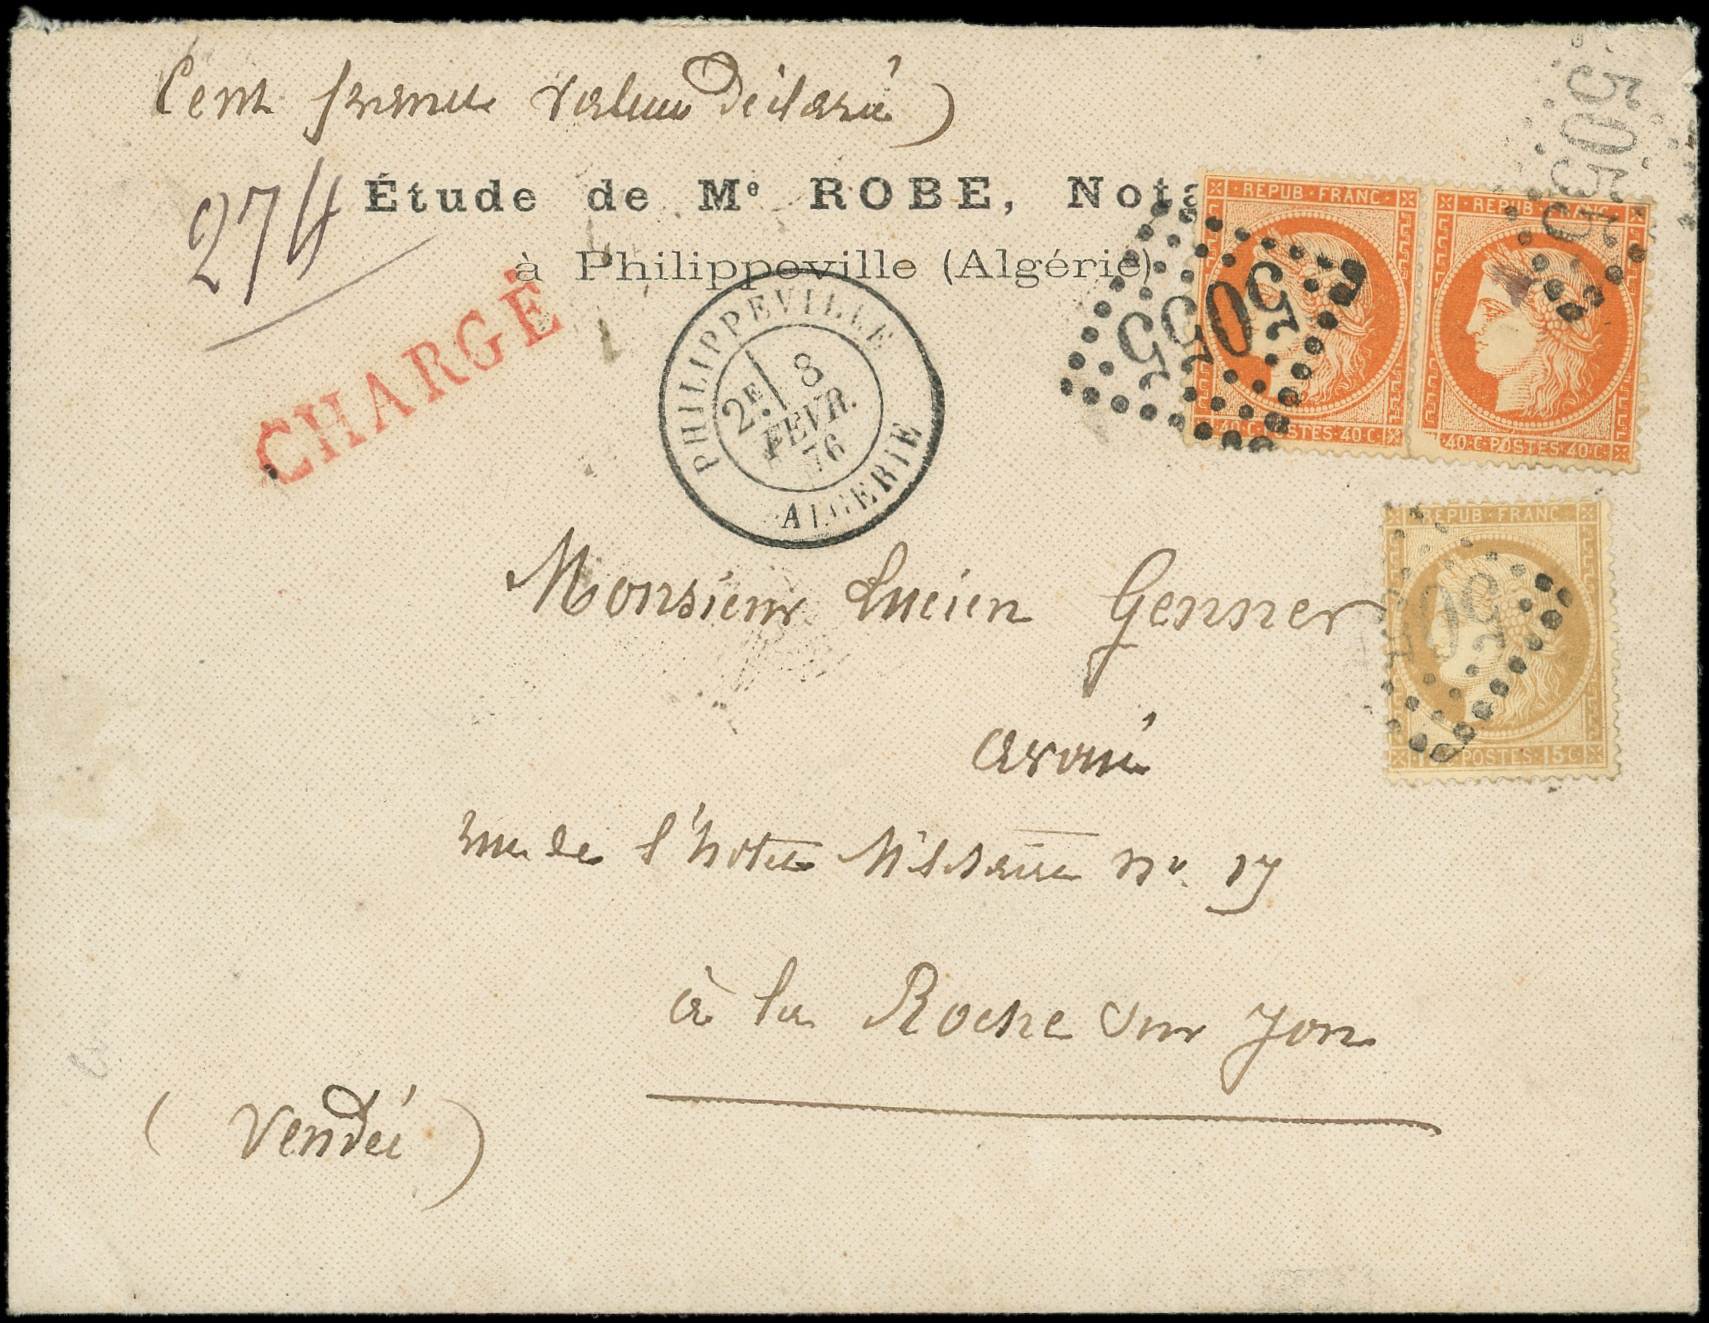 Cent francs valeur Déclaré)
274
Étude de Mᵉ ROBE, Nota
à Philippeville (Algérie)
CHARGÉ
PHILIPPEVILLE
2ᴱ/ 8
FEVR.
76
ALGERIE
REPUB·FRANC·
40·C·POSTES·40·C
5055
REPUB·FRANC
40·C·POSTES·40·C
5055
REPUB·FRANC
POSTES·15·C
505
Monsieur Lucien Genner
avoué
rue de l'hôtel Militaire nº 17
à la Roche sur Yon
(Vendée)